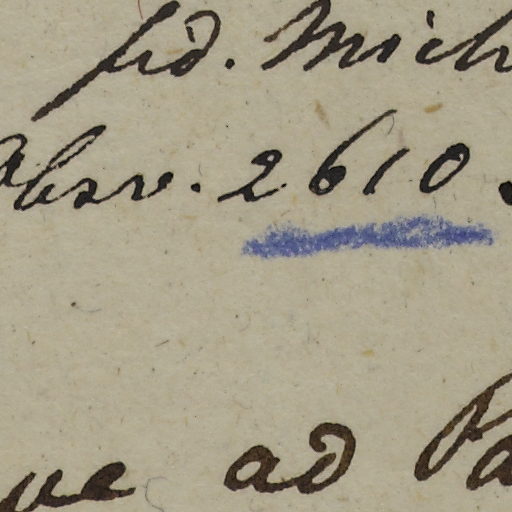 fid. Mich
Absv. 2610.
ue ad Pa